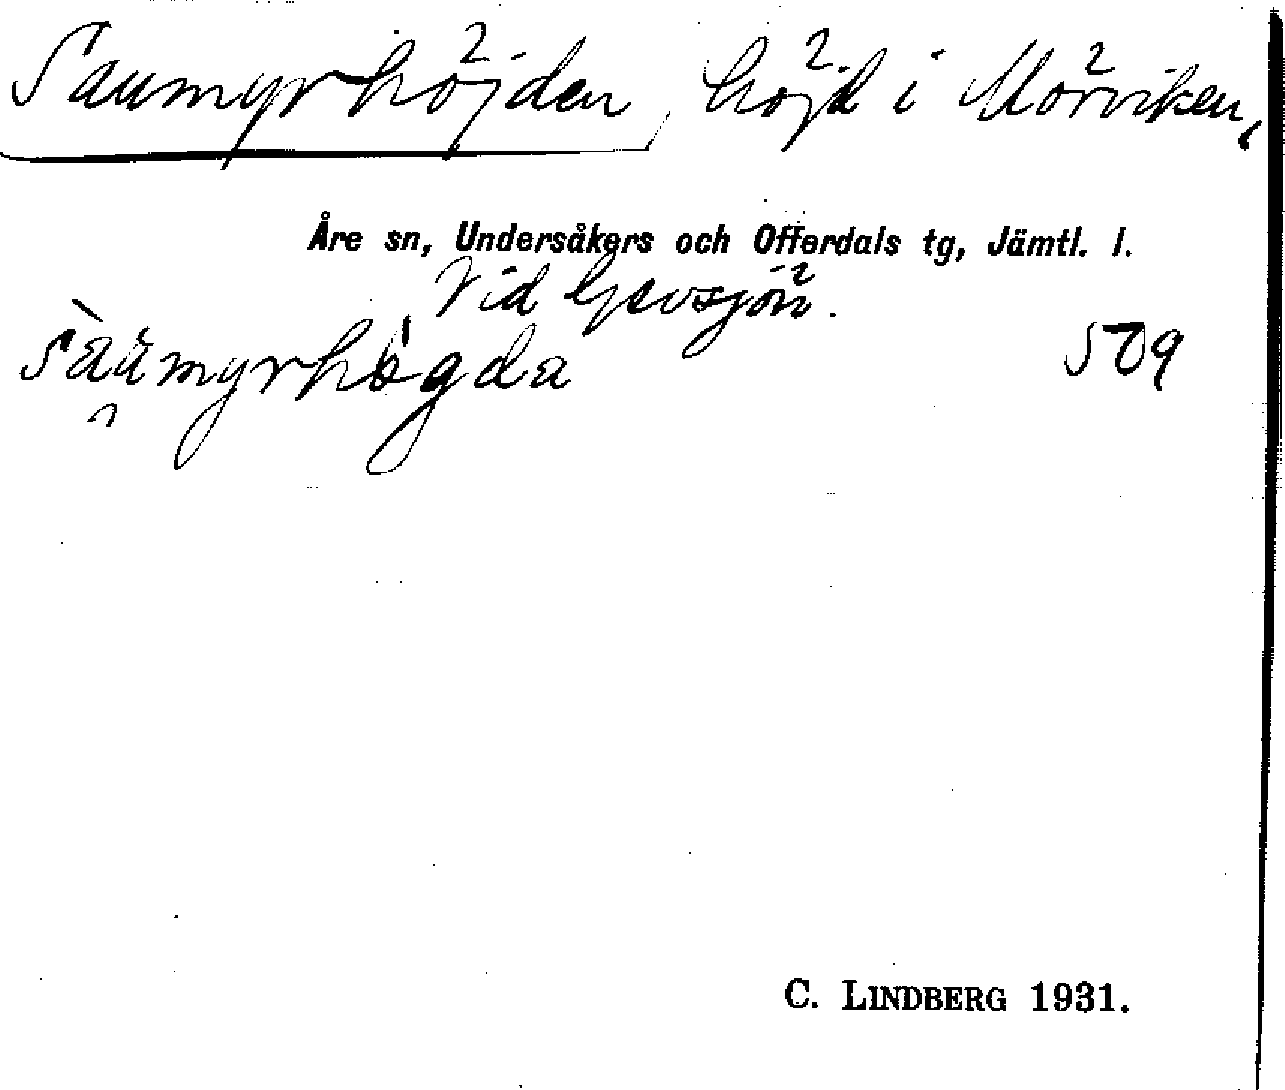 Saumyrhöjden, höjd i Mörviken,
Åre sn, Undersåkers och Offerdals tg, Jämtl. l.
Vid Gevsjön.
509
C. LINDBERG 1931.